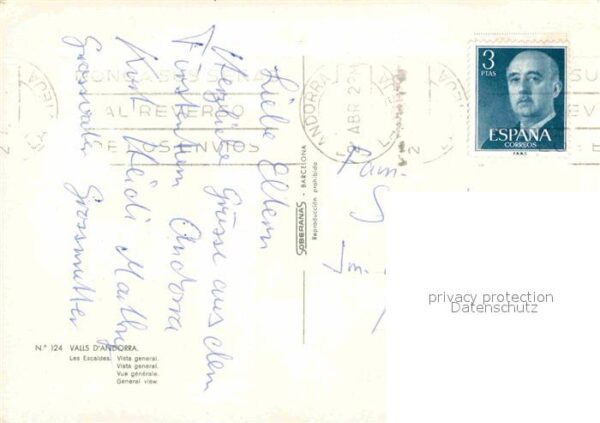 Liebe Eltern
Herzliche Grüsse aus dem
Fürstentum Andorra
Kurt Heidi
Grossvater Grossmutter
Fam.
3
PTAS
ESPAÑA
CORREOS
F.N.M.T.
ANDORRA
ABR
AL REVERSO
ENVIOS
SOBERANAS - BARCELONA
Reproducción prohibida
N.º 124 VALLS D'ANDORRA.
Les Escaldes. Vista general.
Vista general.
Vue générale.
General view.
privacy protection
Datenschutz